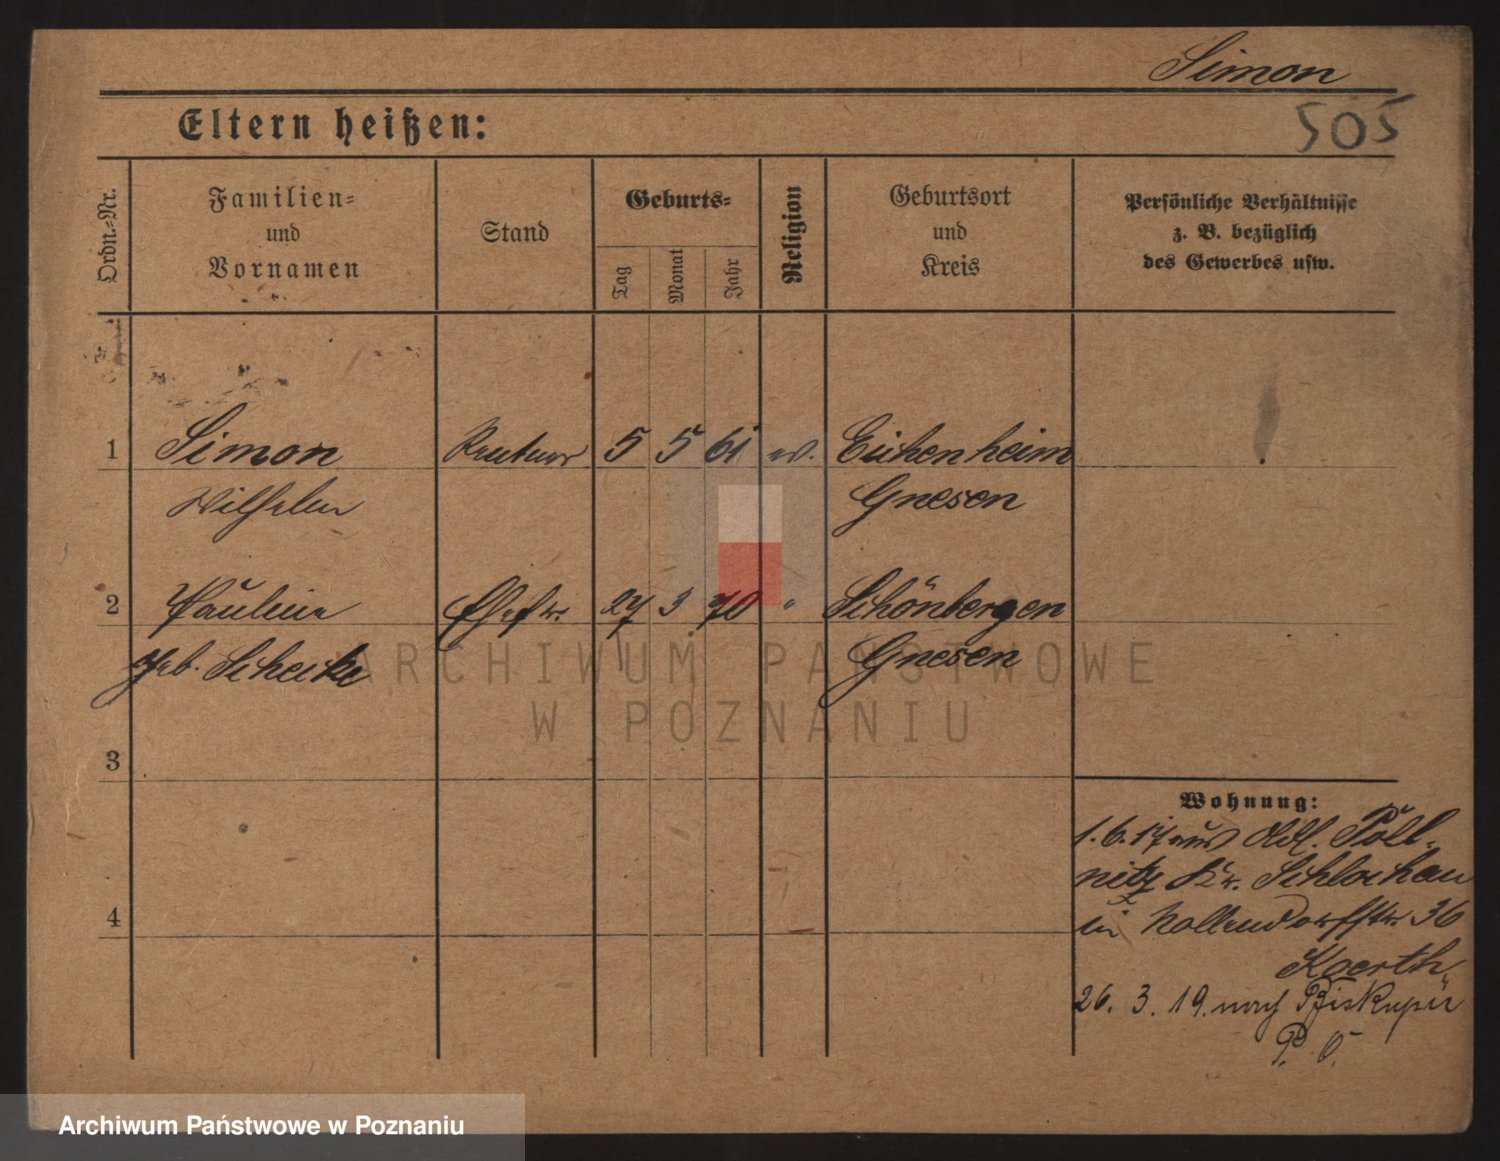 Simon
505
Eltern heißen:
Ordn.=Nr.
Familien=
und
Vornamen
Stand
Geburts=
Tag
Monat
Jahr
Religion
Geburtsort
und
Kreis
Persönliche Verhältnisse
z. B. bezüglich
des Gewerbes usw.
1 Simon Rentner 5 5 61 ev. Eichenheim
Wilhelm Gnesen
2 Pauline Ehefr. 27 3 70 " Schönbergen
geb. Scheike Gnesen
3
4
Wohnung:
1. 6. 17 aus Adl. Pöll-
nitz Kr. Schlochau
in Nollendorfstr. 36
Koerth.
26. 3. 19. nach Biskupitz
P. O.
ARCHIWUM PAŃSTWOWE
W POZNANIU
Archiwum Państwowe w Poznaniu